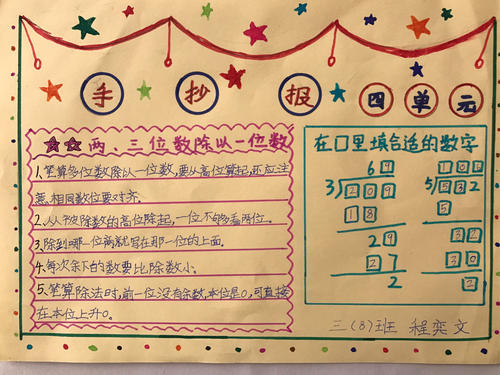 手 抄 报 四单元
★★两、三位数除以一位数
1、笔算多位数除以一位数,要从高位算起,还应注
意相同数位要对齐.
2.从被除数的高位除起,一位不够看两位.
3.除到哪一位商就写在那一位的上面.
4.每次余下的数要比除数小.
5.笔算除法时,前一位没有余数,本位是0,可直接
在本位上升0.
在□里填合适的数字
69
3)209
18
29
27
2
5)532
5
32
30
2
三(8)班 程奕文